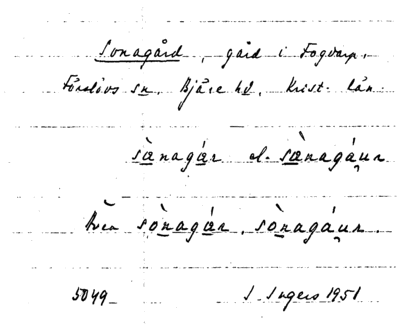 Sonagård, gård i Fogdarp,
Förslövs sn, Bjäre hd, Krist. län.
sæ̀nagár el. sæ̀nagáu̯r
Även sònagár, sònagáu̯r.
5049 I. Ingers 1951